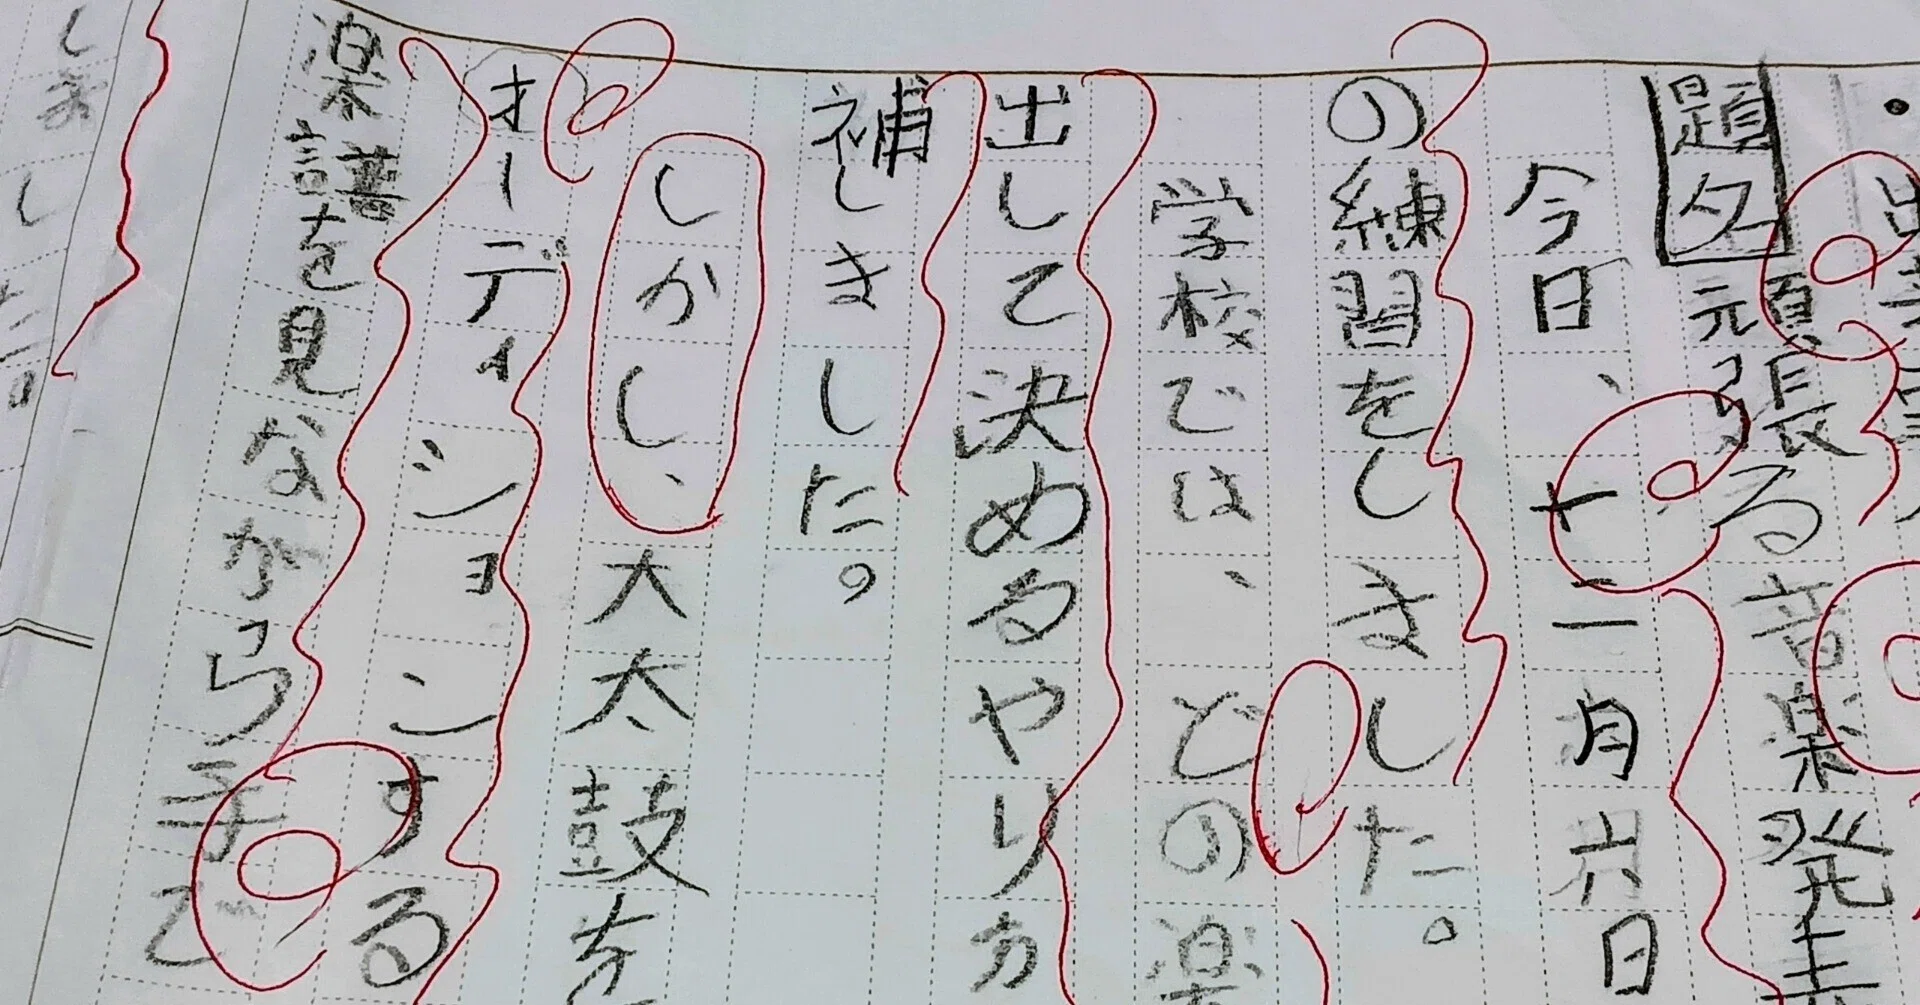 題名頑張る音楽発表
今日、十二月六日
の練習をしました。
学校では、どの楽
出して決めるやりか
補しきました。
しかし、大太鼓を
オーディションする
楽譜を見ながら手で
ました。